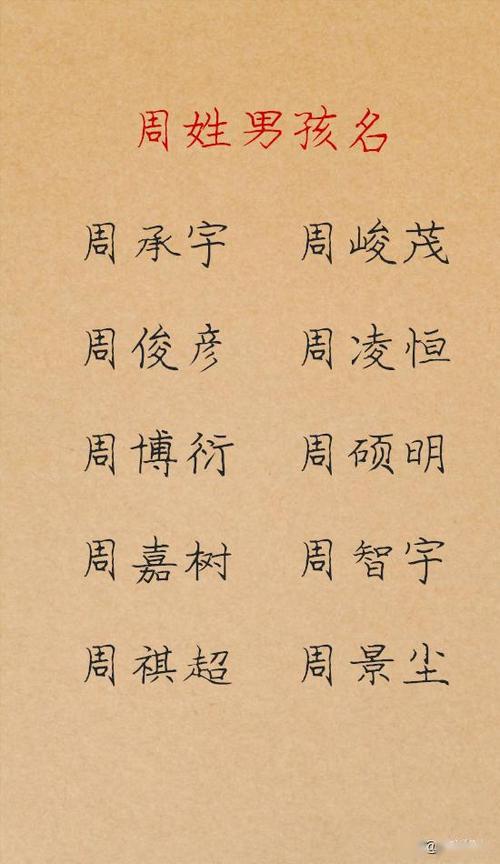 周姓男孩名
周承宇 周峻茂
周俊彦 周凌恒
周博衍 周硕明
周嘉树 周智宇
周祺超 周景尘
@